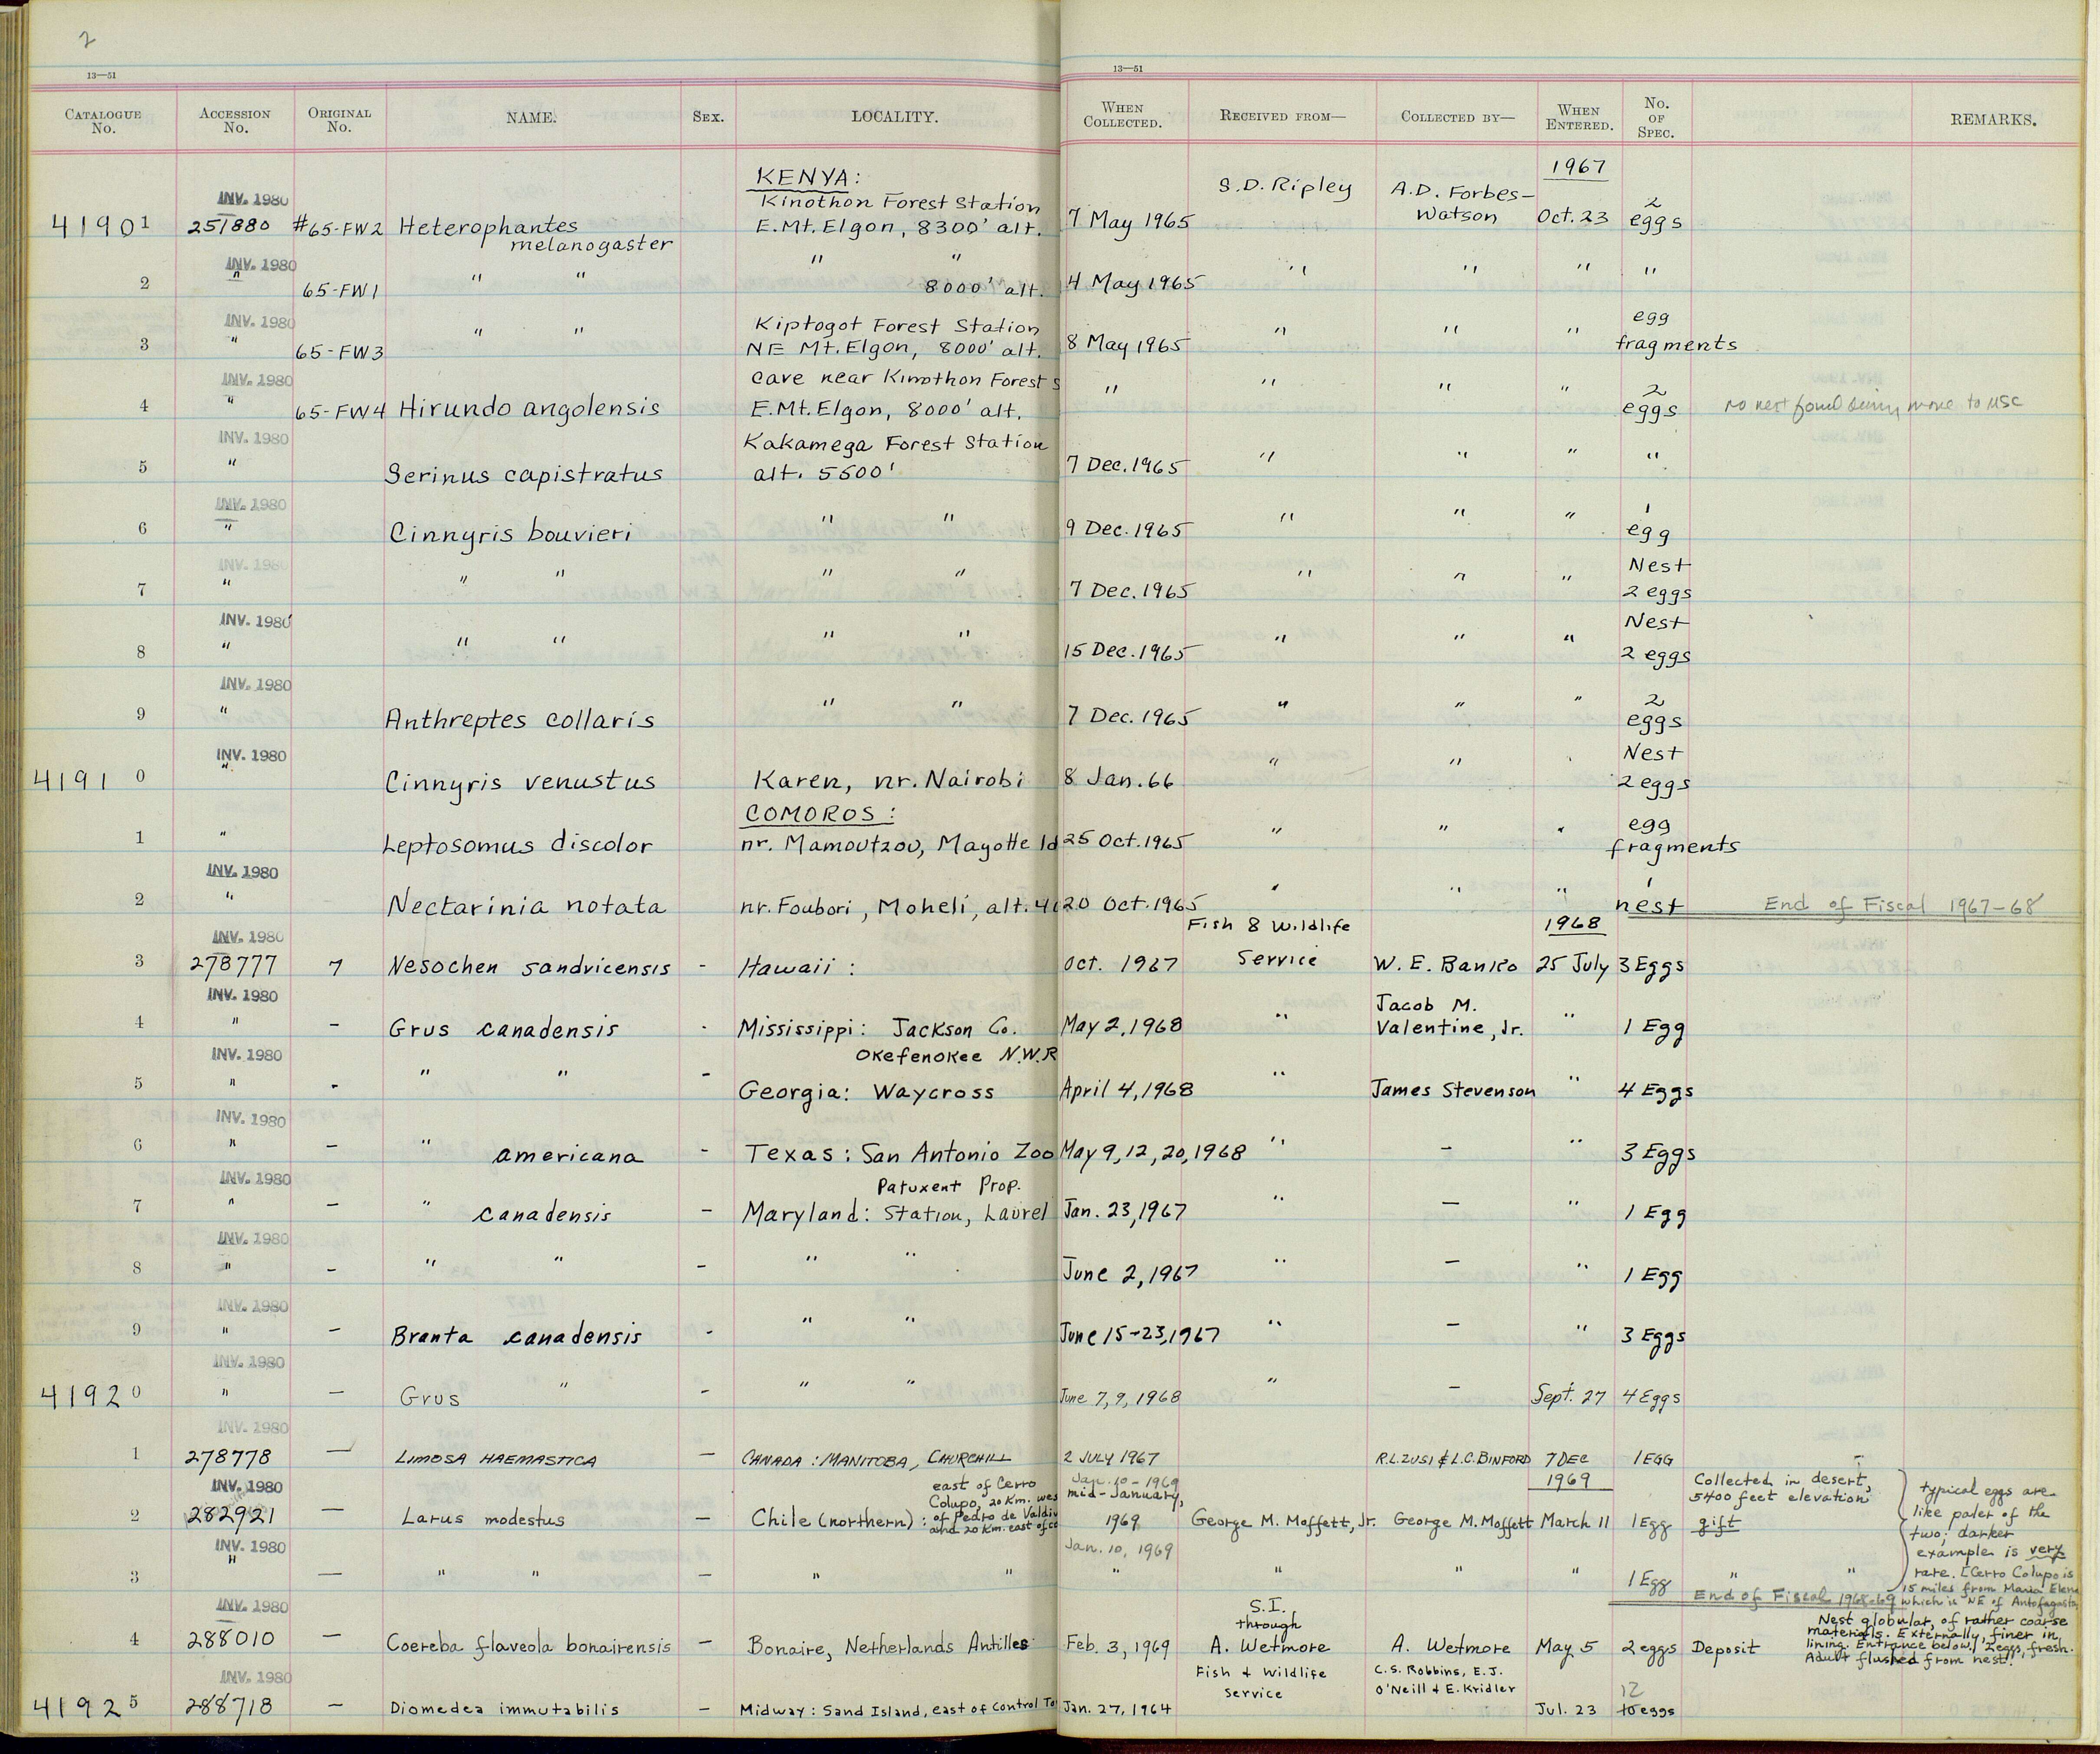 2
13—51
13—51
CATALOGUE No. ACCESSION No. ORIGINAL No. NAME. SEX. LOCALITY. WHEN COLLECTED. RECEIVED FROM— COLLECTED BY— WHEN ENTERED. No. OF SPEC. REMARKS.
KENYA: 1967
INV. 1980 Kinothon Forest Station S.D. Ripley A.D. Forbes- 2
41901 251880 #65-FW2 Heterophantes E.Mt. Elgon, 8300' alt. 7 May 1965 Watson Oct. 23 eggs
melanogaster
INV. 1980
2 " 65-FW1 " " " " 8000' alt. 4 May 1965 " " " "
INV. 1980 Kiptogot Forest Station egg
3 " 65-FW3 " " NE Mt. Elgon, 8000' alt. 8 May 1965 " " " fragments
INV. 1980 cave near Kinothon Forest S 2
4 " 65-FW4 Hirundo angolensis E.Mt. Elgon, 8000' alt. " " " " eggs no nest found during move to MSC
INV. 1980 Kakamega Forest Station
5 " Serinus capistratus alt. 5500' 7 Dec. 1965 " " " "
INV. 1980 1
6 " Cinnyris bouvieri " " 9 Dec. 1965 " " " egg
INV. 1980 Nest
7 " " " " " 7 Dec. 1965 " " " 2 eggs
INV. 1980 Nest
8 " " " " " 15 Dec. 1965 " " " 2 eggs
INV. 1980 2
9 " Anthreptes collaris " " 7 Dec. 1965 " " " eggs
INV. 1980 Nest
41910 " Cinnyris venustus Karen, nr. Nairobi 8 Jan. 66 " " " 2 eggs
COMOROS: egg
1 " Leptosomus discolor nr. Mamoutzou, Mayotte Id 25 Oct. 1965 " " " fragments
INV. 1980 1
2 " Nectarinia notata nr. Foubori, Moheli, alt. 20 Oct. 1965 " " " nest End of Fiscal 1967-68
INV. 1980 Fish & Wildlife 1968
3 278777 7 Nesochen sandvicensis - Hawaii: Oct. 1967 Service W. E. Banko 25 July 3 Eggs
INV. 1980 Jacob M.
4 " - Grus canadensis - Mississippi: Jackson Co. May 2, 1968 " Valentine, Jr. " 1 Egg
INV. 1980 Okefenokee N.W.R
5 " - " " - Georgia: Waycross April 4, 1968 " James Stevenson " 4 Eggs
INV. 1980
6 " - " americana - Texas: San Antonio Zoo May 9, 12, 20, 1968 " - " 3 Eggs
INV. 1980 Patuxent Prop.
7 " - " canadensis - Maryland: Station, Laurel Jan. 23, 1967 " - " 1 Egg
INV. 1980
8 " - " " - " " June 2, 1967 " - " 1 Egg
INV. 1980
9 " - Branta canadensis - " " June 15-23, 1967 " - " 3 Eggs
INV. 1980
41920 " - Grus " - " " June 7, 9, 1968 " - Sept. 27 4 Eggs
INV. 1980
1 278778 - LIMOSA HAEMASTICA - CANADA: MANITOBA, CHURCHILL 2 JULY 1967 R.L. ZUSI & L.C. BINFORD 7 DEC 1 EGG -
INV. 1980 east of Cerro Jan. 10 - 1969 1969 Collected in desert,
Colupo, 20 Km. wes mid-January, 5400 feet elevation
2 282921 - Larus modestus - Chile (northern): of Pedro de Valdiv 1969 George M. Moffett, Jr. George M. Moffett March 11 1 Egg gift
and 20 Km. east of co
typical eggs are
like paler of the
two; darker
example is very
rare. [Cerro Colupo is
15 miles from Maria Elena
which is NE of Antofagasta
INV. 1980 Jan. 10, 1969
3 " - " " - " " " " " " 1 Egg " "
End of Fiscal 1968-69
INV. 1980 S.I.
through
4 288010 - Coereba flaveola bonairensis - Bonaire, Netherlands Antilles Feb. 3, 1969 A. Wetmore A. Wetmore May 5 2 eggs Deposit
Nest globular, of rather coarse
materials. Externally, finer in
lining. Entrance below. 2 eggs, fresh.
Adult flushed from nest.
INV. 1980 Fish & Wildlife C.S. Robbins, E.J.
Service O'Neill & E. Kridler 12
41925 288718 - Diomedea immutabilis - Midway: Sand Island, east of Control To Jan. 27, 1964 Jul. 23 10 eggs